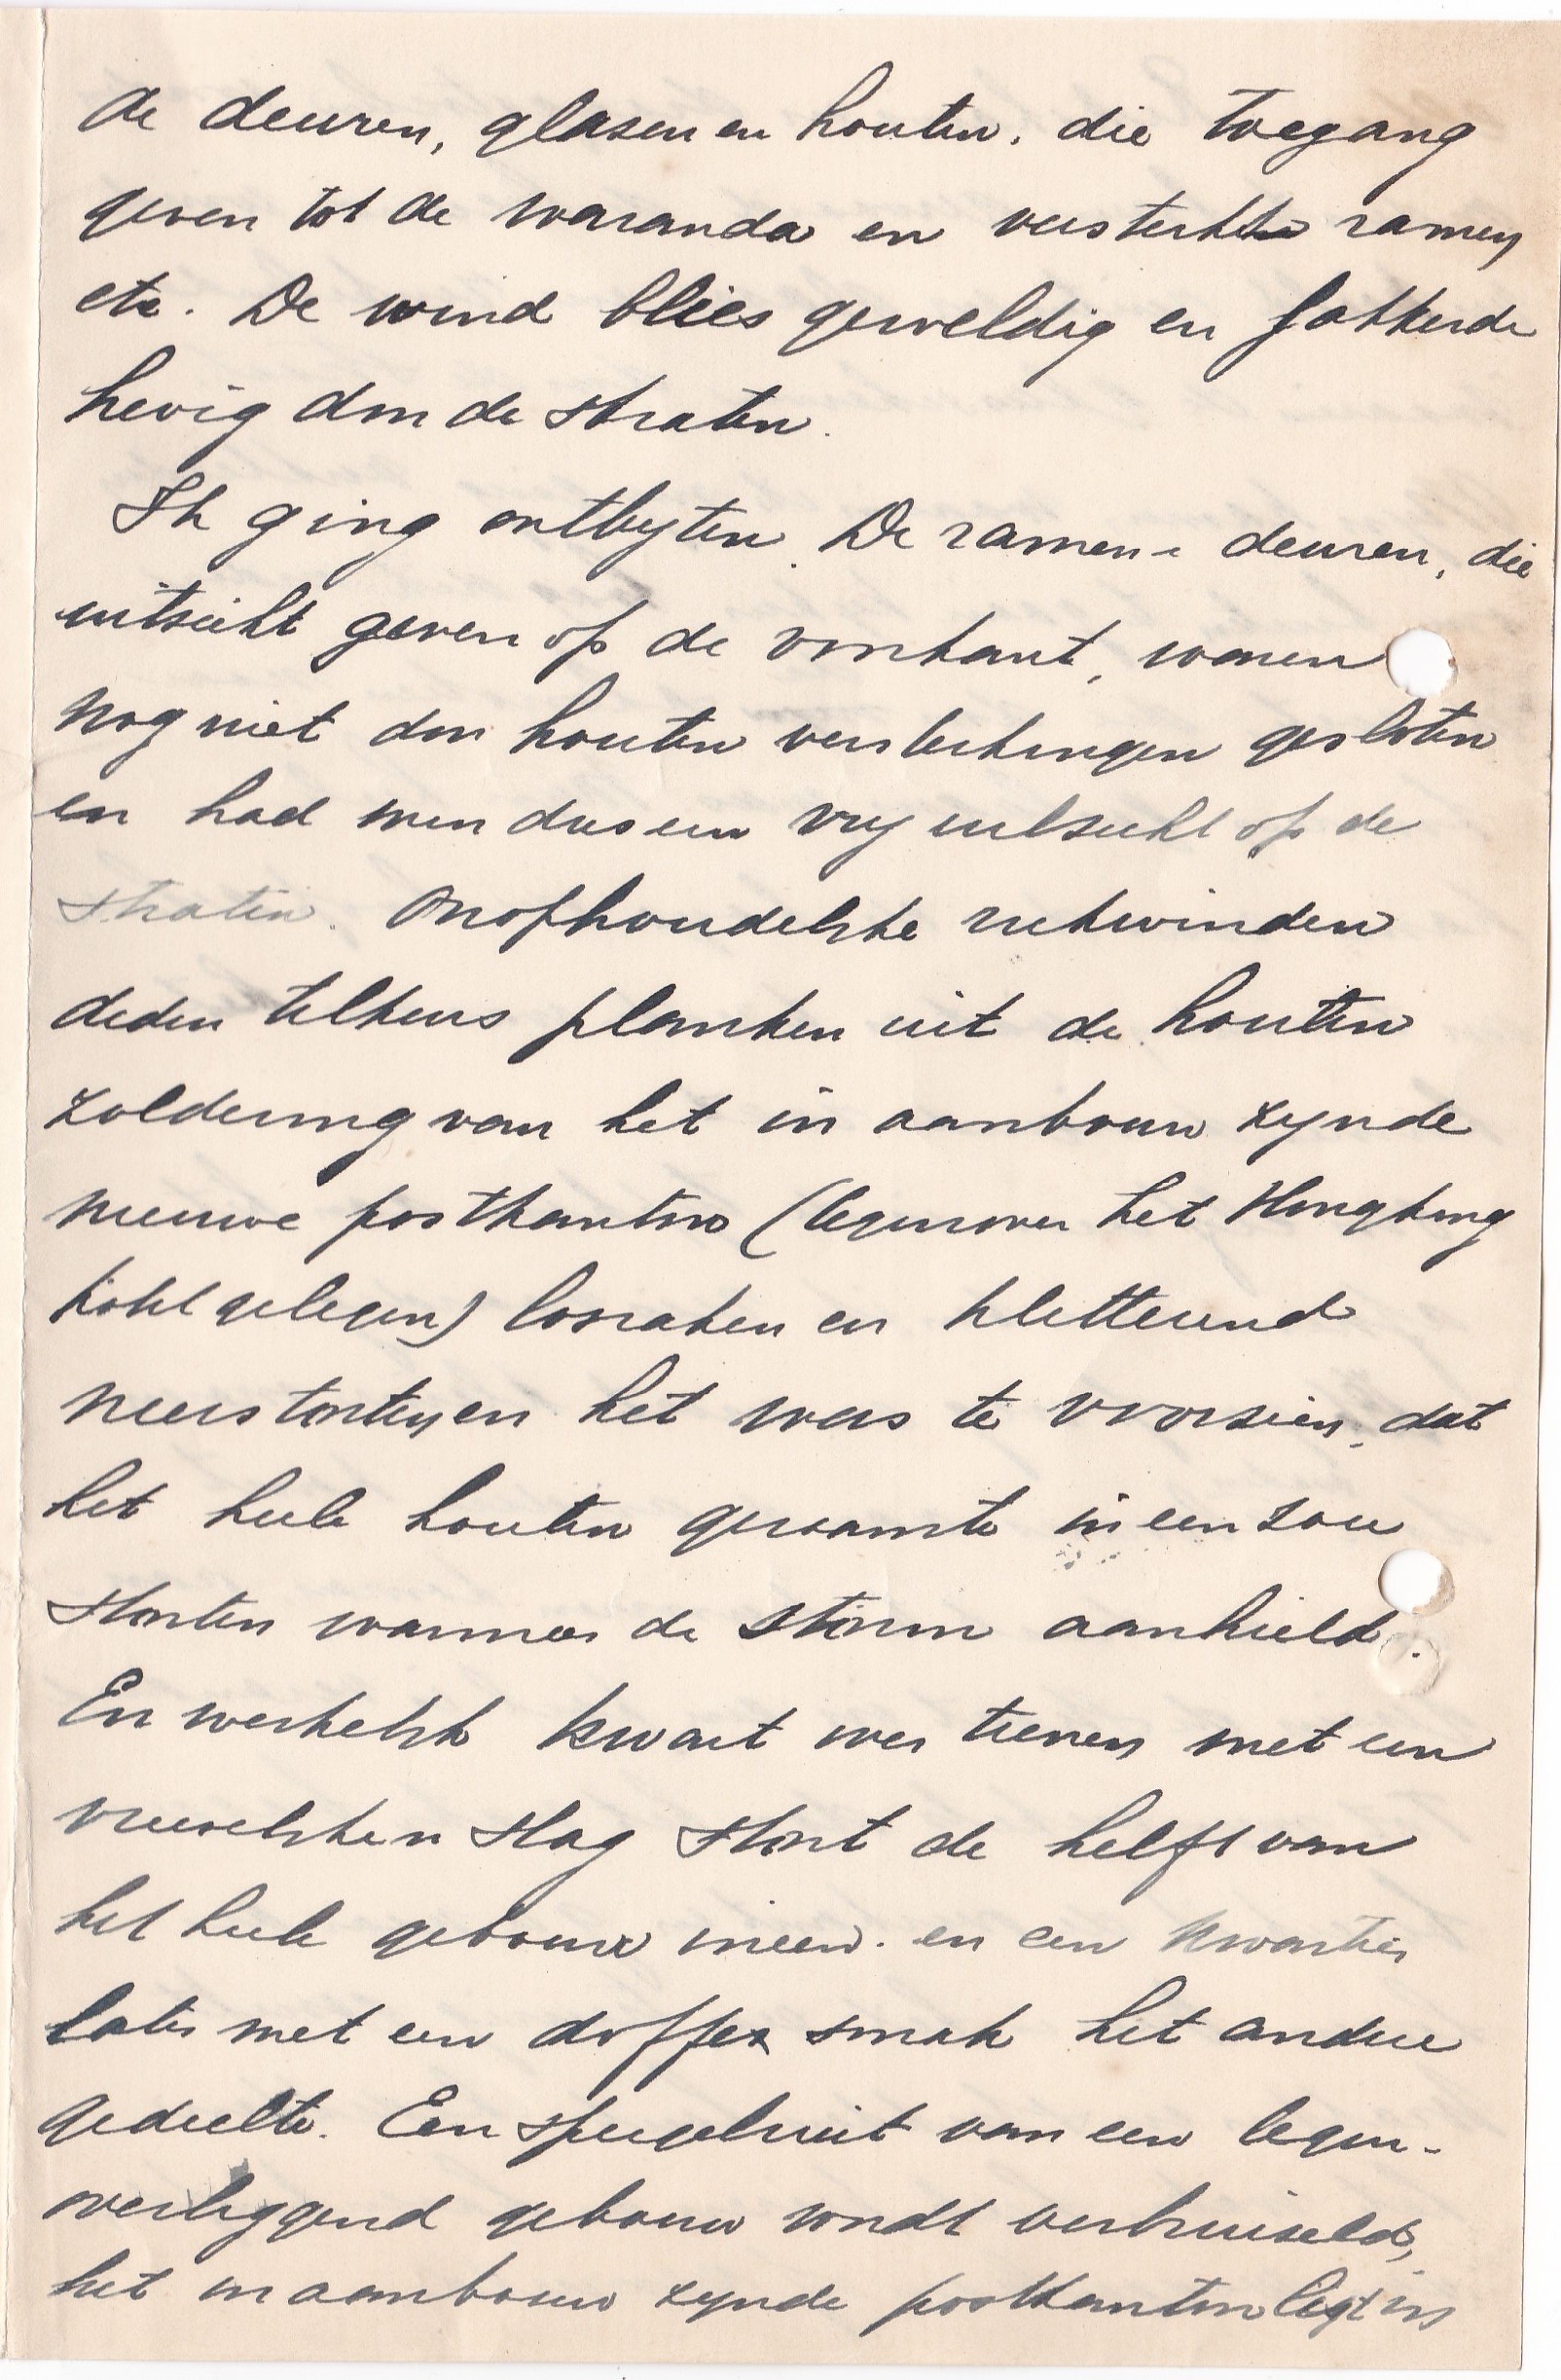 de deuren, glasen en houten, die toegang
geven tot de waranda en versterkte ramen
etc. De wind blies geweldig en jakkerde
hevig door de straten.
Ik ging ontbyten. De ramen e deuren, die
uitzicht geven op de voorkant, waren
nog niet door houten versterkingen gesloten
en had men dus een vry uitzicht op de
straten. Onophoudelyke rukwinden
deden telkens planken uit de houten
zoldering van het in aanbouw zynde
nieuwe postkantoor (tegenover het Hongkong
Hotel gelegen) losraken en kletterend
neerstorten en het was te voorzien, dat
het heele houten geraamte ineen zou
storten wanneer de storm aanhield.
En werkelyk kwart over tienen met een
vreeselyken slag stort de helft van
het heele gebouw ineen. en een kwartier
later met een doffen smak het andere
gedeelte. Een spiegelruit van een tegen-
overliggend gebouw wordt verbruiseld,
het in aanbouw zynde postkantoor ligt in